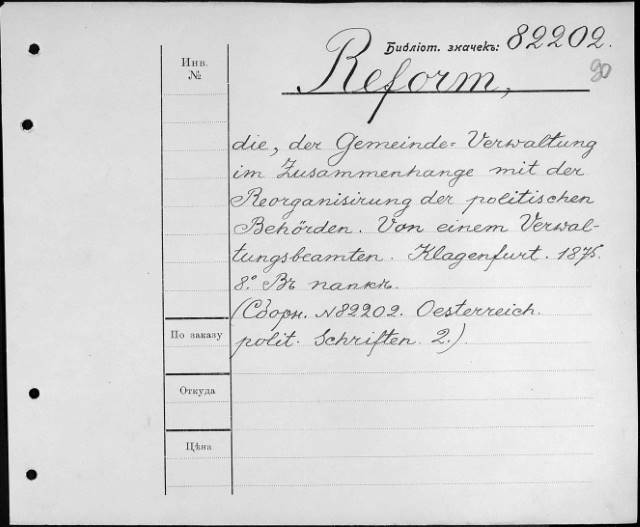 Библіот. значекъ: 82202.
Инв.
№
Reform,
90
die, der Gemeinde-Verwaltung
im Zusammenhange mit der
Reorganisirung der politischen
Behörden. Von einem Verwal-
tungsbeamten. Klagenfurt. 1875.
8.° Въ папкѣ.
(Сборн. №82202. Oesterreich.
polit. Schriften. 2.)
По заказу
Откуда
Цѣна